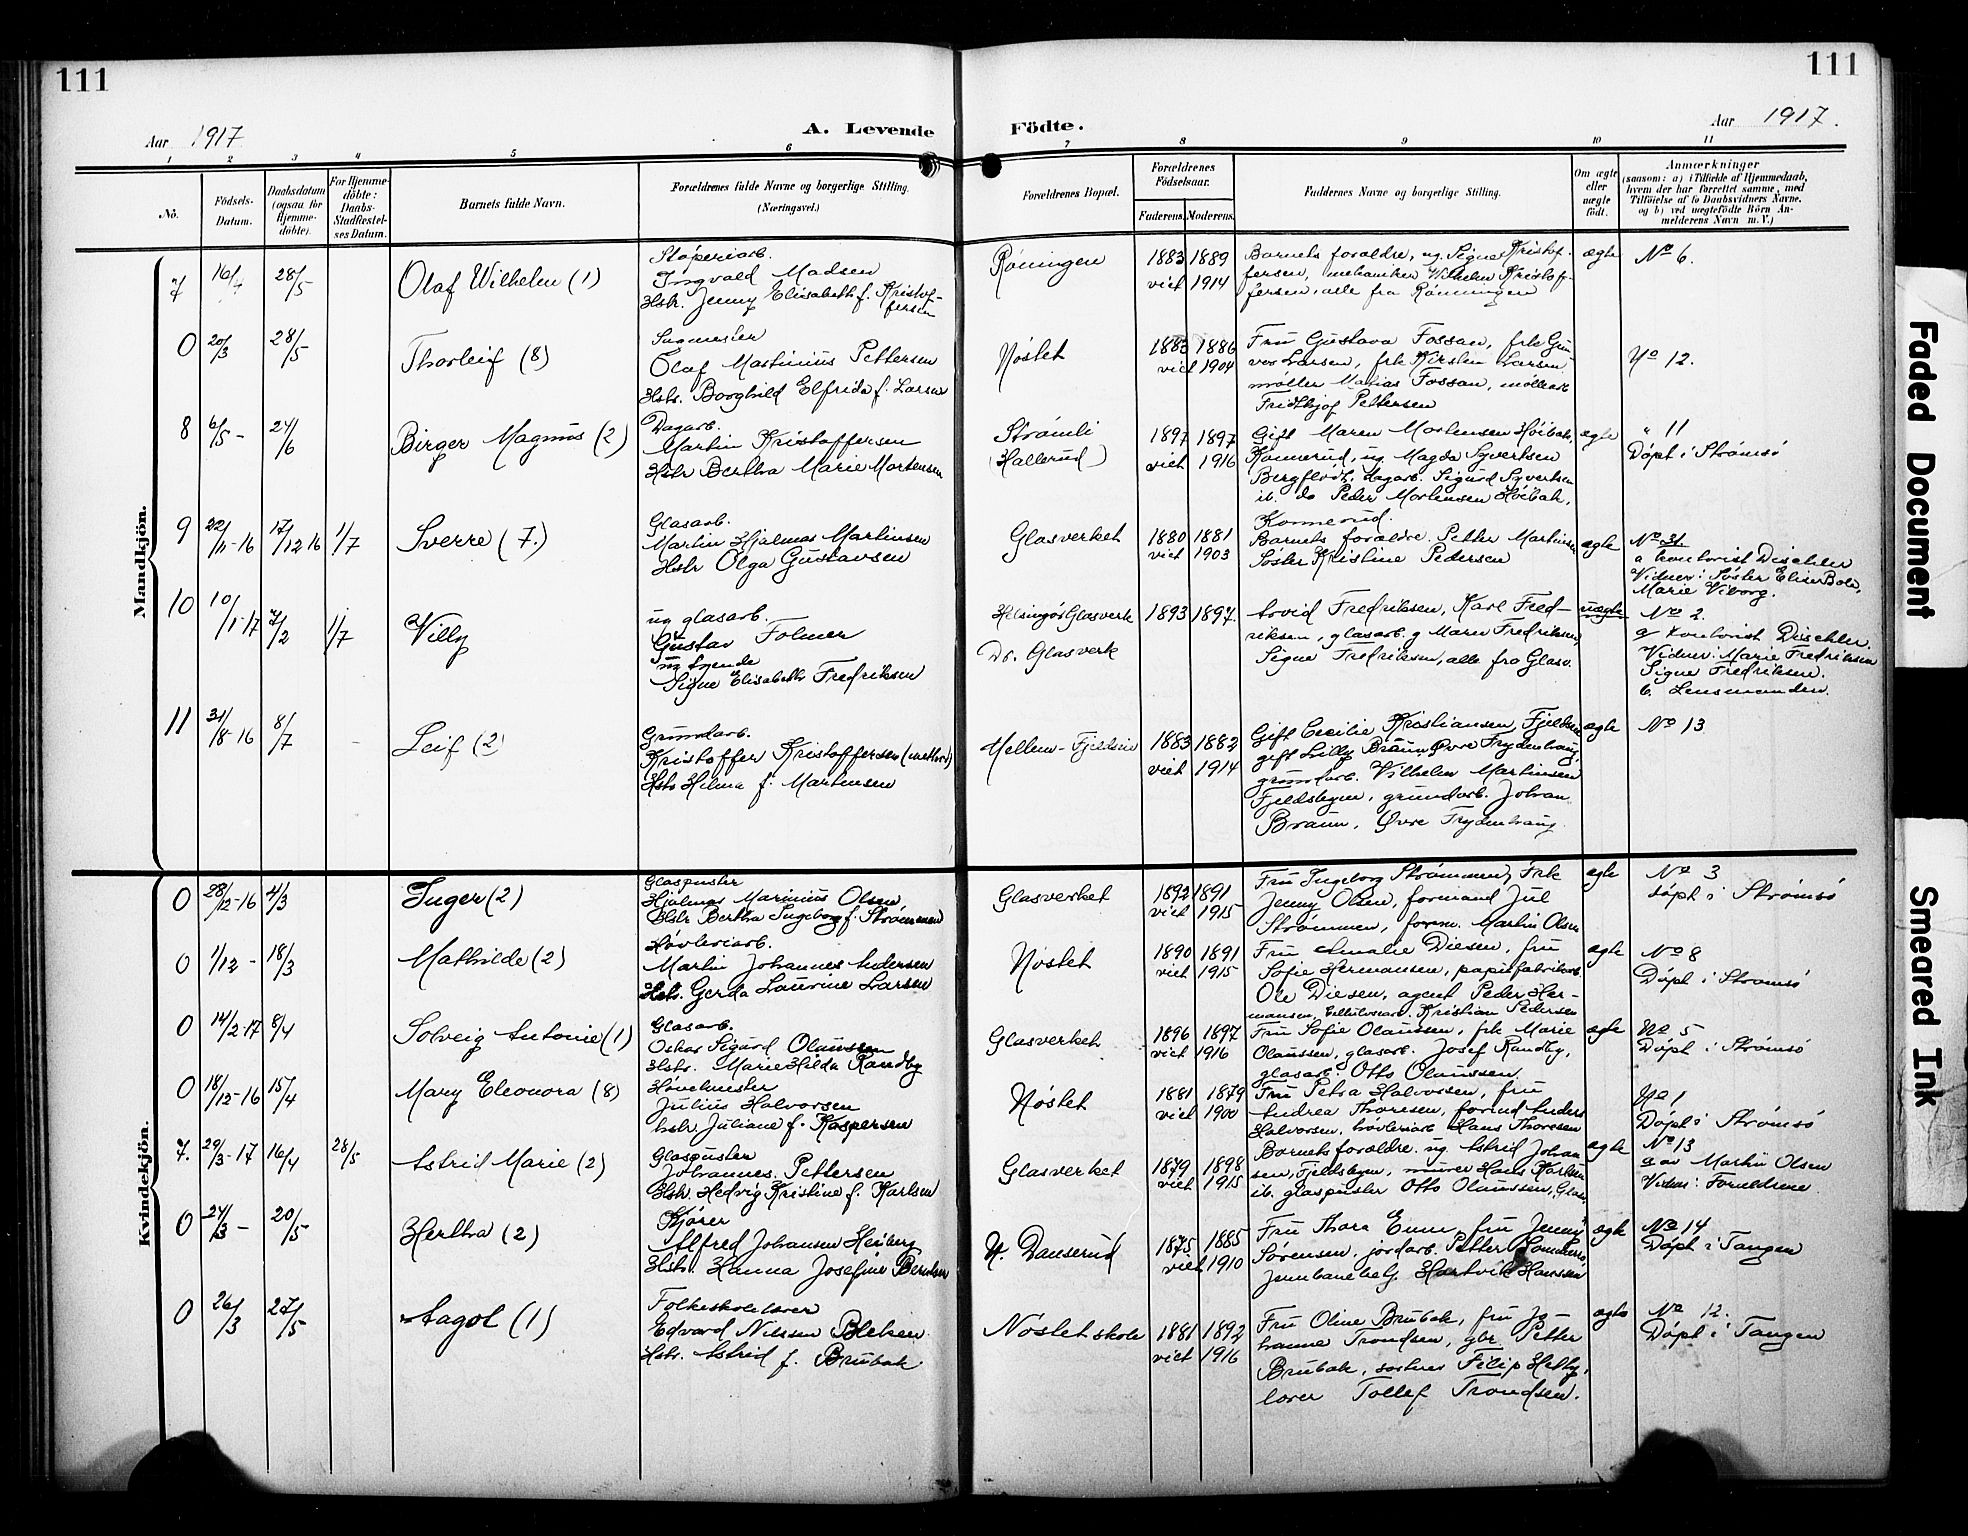 111
111
Aar 1917
A. Levende
Födte.
Aar 1917.
1 2 3 4 5 6 7 8 9 10 11
No.
Födsels-
Datum.
Daabsdatum
(ogsaa for
Hjemme-
döbte).
For Hjemme-
döbte:
Daabs-
Stadfæstel-
ses Datum.
Barnets fulde Navn.
Forældrenes fulde Navne og borgerlige Stilling.
(Næringsvei.)
Forældrenes Bopæl.
Forældrenes
Födselsaar.
Faderens. Moderens.
Faddernes Navne og borgerlige Stilling.
Om ægte
eller
uægte
født.
Anmærkninger
(saasom: a) i Tilfælde af Hjemmedaab,
hvem der har forrettet samme, med
Tilföielse af to Daabsvidners Navne,
og b) ved uægtefödte Börn An-
melderens Navn m. V.)
Mandkjön.
7 28/5 Olaf Wilhelm (1)
Støperiarb.
Ingvald Madsen
Hstr. Jenny Elisabeth f. Kristof-
fersen
Røningen
1883 1889
viet 1914
Barnets foraldre, ug. Signe Kristof-
fersen, mekaniker Wilhelm Kristof-
fersen, alle fra Rønningen
ægte
No 6.
0 20/3 28/5 Thorleif (8)
Sagmester
Olaf Martinius Pettersen
Hstr. Borghild Elfrida f. Larsen
Nøstet
1883 1886
viet 1904
Fru Gustava Fossan, frk Gun
vor Larsen, frk Kirsten Larsen
møller Matias Fossan, møllearb
Fridtkjof Pettersen
No 12.
8 6/5 - 24/6 Birger Magnus (2)
Dagarb.
Martin Kristoffersen
Hstr Bertha Marie Mortensen
Strømli
(Hallerud)
1897 1897
viet 1916
Gift Maren Mortensen Høibak,
Konnerud, ug Magda Syvertsen
Bergflødt, dagarb. Sigurd Syvertsen
ib. do Peder Mortensen Høibak,
Konnerud.
ægte
" 11
Døpt i Strømsø
9 22/11-16 17/12 16 1/7 Sverre (7.)
Glasarb.
Martin Hjalmar Martinsen
Hstr Olga Gustavsen
Glasverket
1880 1881
viet 1903
Barnets foraldre. Petter Martinsen
Søster Kristine Pedersen
ægte
No 31.
a kontorist Dischler
Vidner: Søster Elise Boe,
Marie Viborg.
10 10/1-17 7/2 1/7 Villy
ug glasarb.
Gustav Folmer
ug tyende
Signe Elisabeth Fredriksen
Helsingør Glasverk
Dr. Glasverk
1893 1897.
Arvid Fredriksen, Karl Fred-
riksen, glasarb. g Maren Fredriksen,
Signe Fredriksen, alle fra Glasv.
uægte
No 2.
a Kontorist Dischler.
Vidner: Marie Fredriksen
Signe Fredriksen.
b. Lensmanden.
11 31/8-16 8/7 - Leif (2)
Grundarb.
Kristoffer Kristoffersen
Hstr Hilma f. Martinsen
Mellem-Fjeldsbyen
1883 1882
viet 1914
Gift Cecilie Kristiansen, Fjeldsbyen
gift Lilly Braun, Øvre Frydenhaug,
grundarb. Vilhelm Martinsen
Fjeldsbyen, grundarb. Johan
Braun, Øvre Frydenhaug.
ægte
No 13
Kvindekjön.
0 28/12-16 4/3 Inger (2)
Glaspuster
Hjalmar Marinius Olsen,
Hstr Bertha Ingeborg f. Strømmen
Glasverket
1892 1891
viet 1915
Fru Ingeborg Strømmen, Frk
Jenny Olsen, formand Jul
Strømmen, form. Martin Olsen
ægte
No 3
døpt i Strømsø
0 1/12 - 18/3 Mathilde (2)
Høvleriarb.
Martin Johannes Andersen
Hstr. Gerda Laurine Larsen
Nøstet
1890 1891
viet 1915
Fru Amalie Diesen, fru
Sofie Hermansen, papirfabrikarb.
Ole Diesen, agent Peder Her-
mansen, Cellulosearb. Kristian Pedersen
ægte
No 8
Døpt i Strømsø
0 14/2-17 8/4 Solveig Antonie (1)
Glasarb.
Oskar Sigurd Olaussen
Hstr. Marie Hilda Randby
Glasverket
1896 1897
viet 1916
Fru Sofie Olaussen, frk Marie
Olaussen, glasarb. Josef Randby,
glasarb. Otto Olaussen
ægte
No 5
Døpt i Strømsø
0 18/12-16 15/4 Mary Eleonora (8)
Høvelmester
Julius Halvorsen
hstr. Juliane f. Kaspersen
Nøstet
1881 1879
viet 1900
Fru Petra Halvorsen, fru
Andrea Thoresen, formd Anders
Halvorsen, høvleriarb Hans Thoresen
No 1
Døpt i Strømsø
7. 29/3-17 16/4 28/5 Astrid Marie (2)
Glaspuster
Johannes Pettersen
Hstr. Hedvig Kristine f. Karlsen
Glasverket
1879 1898
viet 1915
Barnets foraldre. ug Astrid Johan
sen, Fjeldsbyen, murer Hans Karlsen
ib. glaspuster Otto Olaussen, Glasv.
ægte
No 13
a av Martin Olsen
Vidner: Foreldrene
0 24/3 - 20/5 Hertha (2)
Kjører
Alfred Johansen Heiberg
Hstr. Hanna Josefine Berntsen
N. Danserud
1875 1885
viet 1910
Fru Thora Enner, fru Jenny
Sørensen, jordarb. Petter
Jernbanebetj. Hartvik Hanssen
ægte
No 14
Døpt i Tangen
0 26/3 27/5 Aagot (1)
Folkeskolelærer
Edvard Nilssen Bleken
Hstr. Astrid f. Brubak
Nøstet skole
1881 1892
viet 1916
Fru Oline Brubak, fru Jo
hanne Trondsen, gbr. Petter
Brubak, Filip Helby,
lærer Tollef Trondsen.
ægte
No 12.
Døpt i Tangen
Faded Document
Smeared Ink